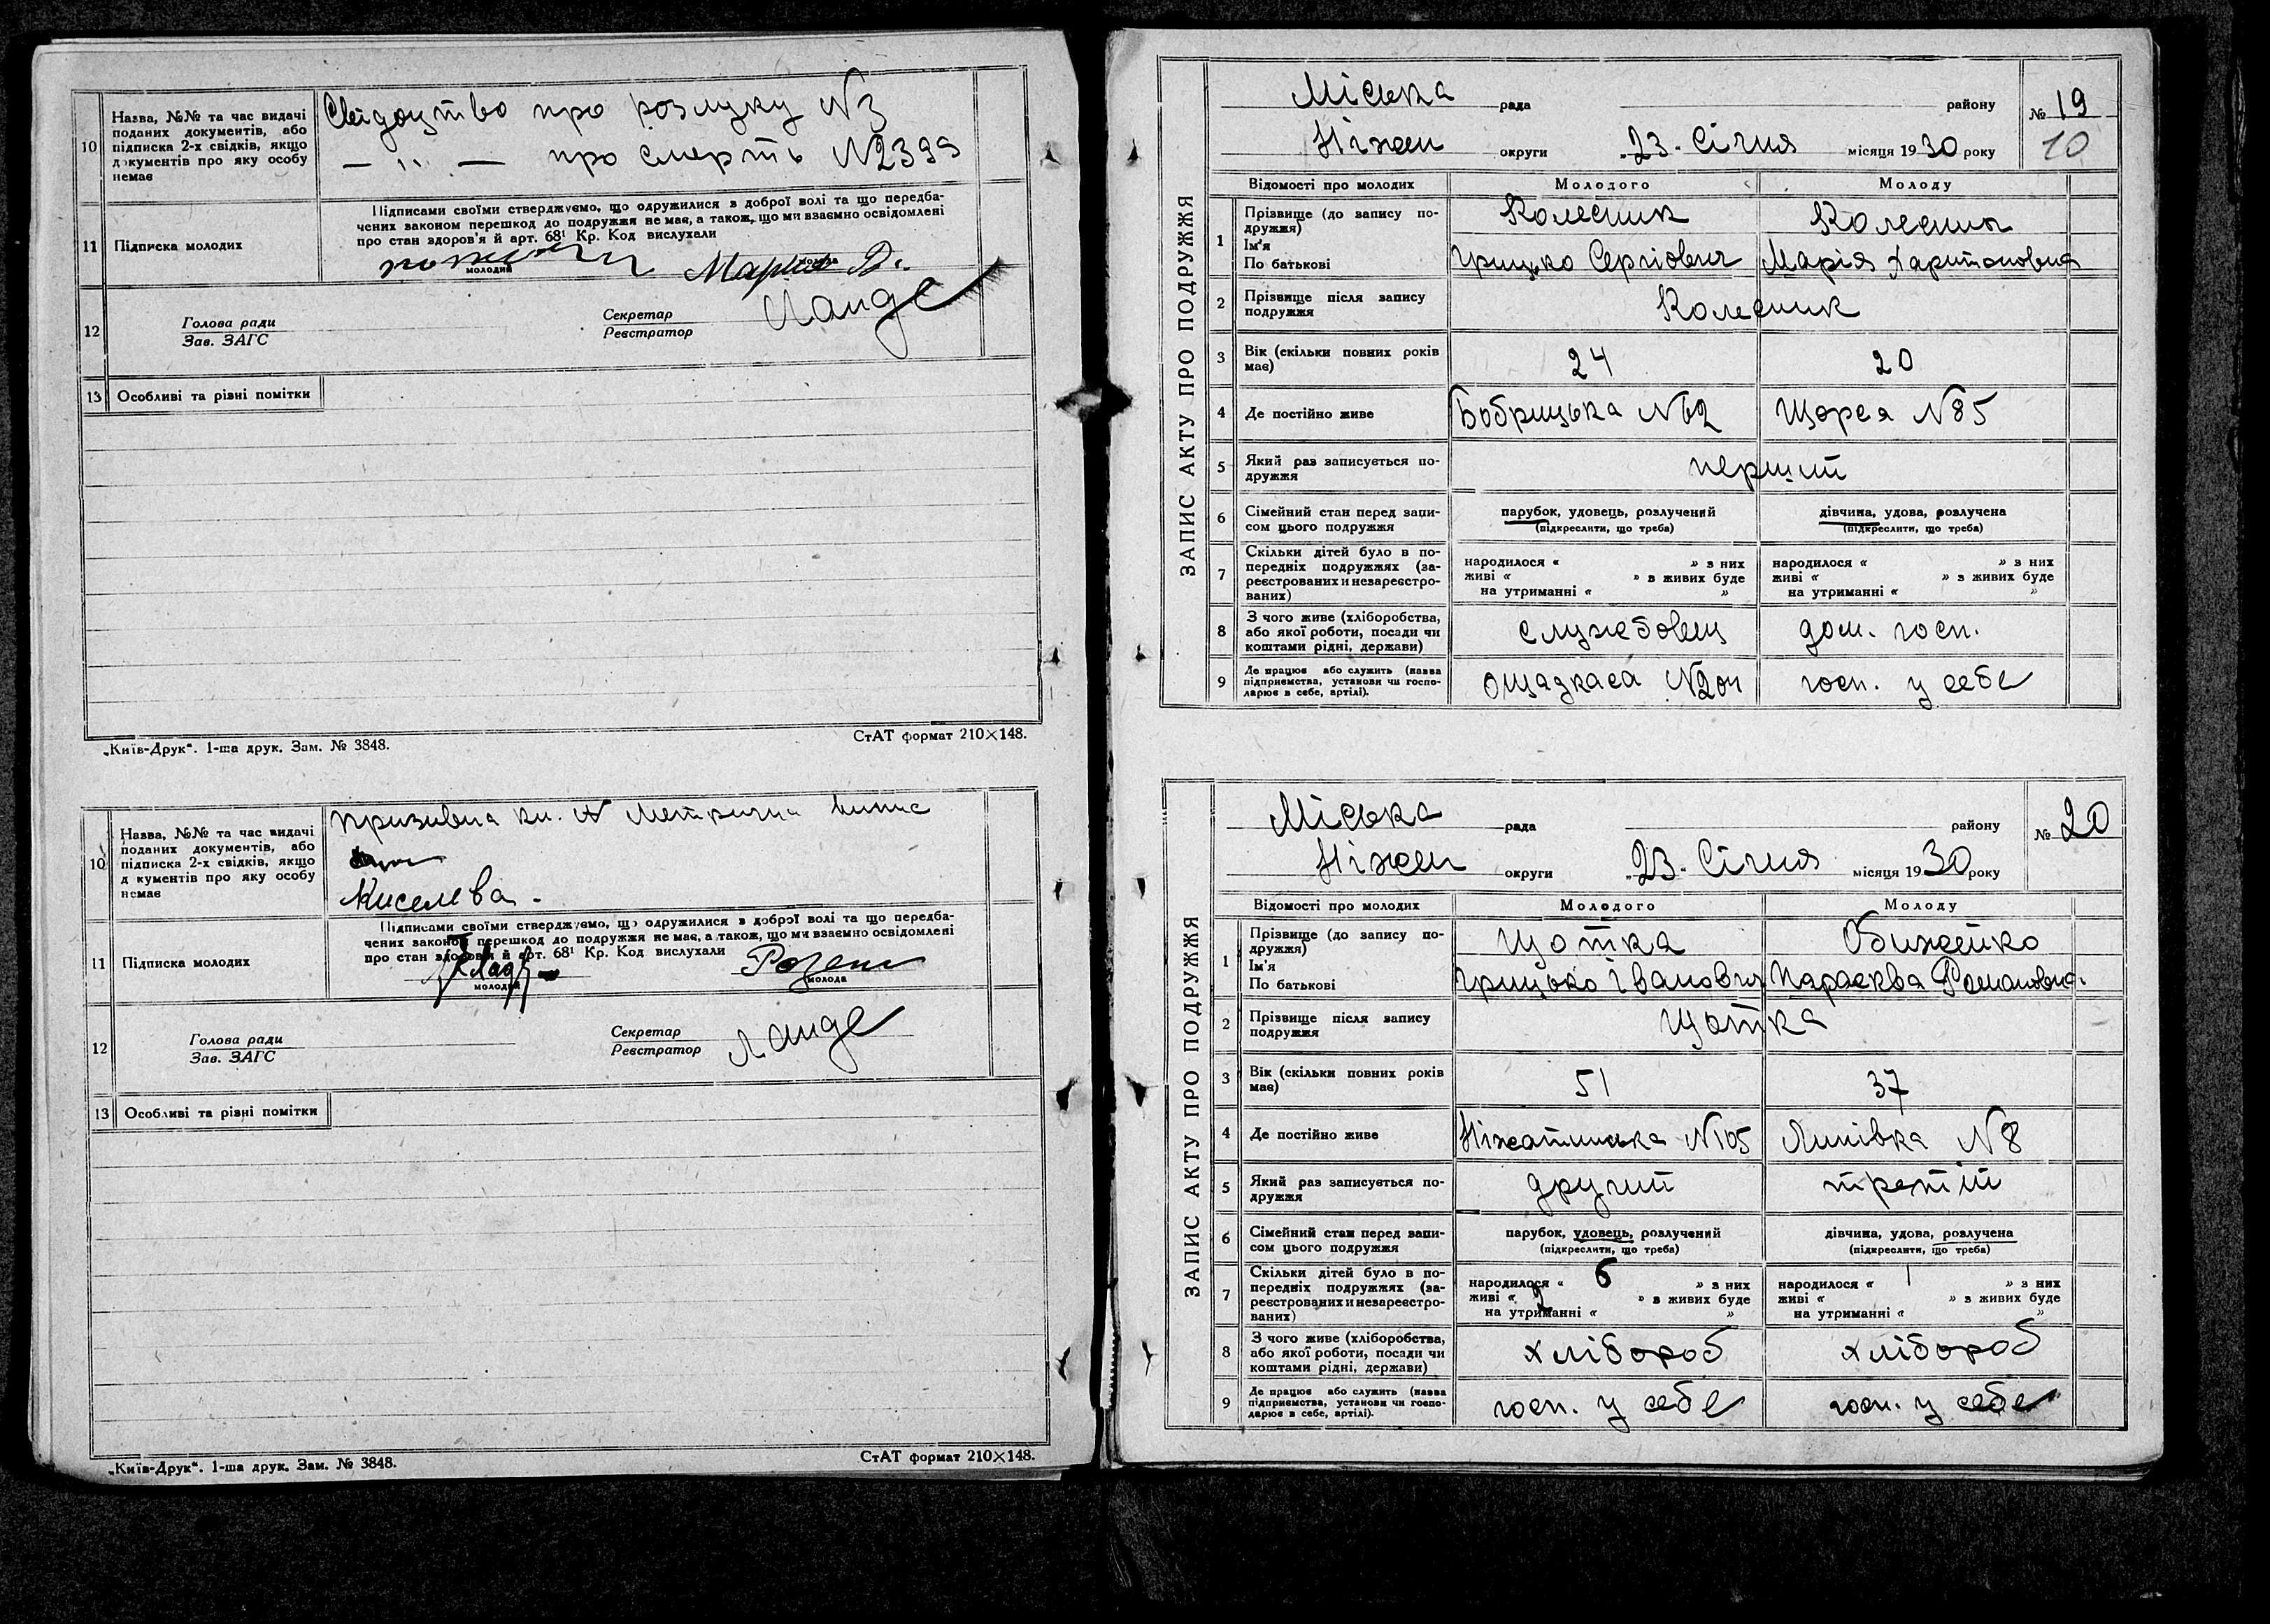 10 Назва, №№ та час видачі
поданих документів, або
підписка 2-х свідків, якщо
документів про яку особу
немає
Свідоцтво про розлуку N3
— " — про смерть N2399
11 Підписка молодих
Підписами своїми стверджуємо, що одружилися з доброї волі та що передба-
чених законом перешкод до подружжя не має, а також, що ми взаємно освідомлені
про стан здоров'я й арт. 68¹ Кр. Код вислухали
молодий
молода
12 Голова ради
Зав. ЗАГС
Секретар
Реєстратор
Ланде
13 Особливі та різні помітки
„Київ-Друк“. 1-ша друк. Зам. № 3848.
СтАТ формат 210×148.
10 Назва, №№ та час видачі
поданих документів, або
підписка 2-х свідків, якщо
д кументів про яку особу
немає
Призивна кн. Метрична випис
Киселева.
11 Підписка молодих
Підписами своїми стверджуємо, що одружилися з доброї волі та що передба-
чених законом перешкод до подружжя не має, а також, що ми взаємно освідомлені
про стан здоров'я й арт. 68¹ Кр. Код вислухали
молодий
молода
12 Голова ради
Зав. ЗАГС
Секретар
Реєстратор
Ланде
13 Особливі та різні помітки
„Київ-Друк“. 1-ша друк. Зам. № 3848.
СтАТ формат 210×148.
ЗАПИС АКТУ ПРО ПОДРУЖЖЯ
Міська рада району № 19
Ніжен округи „23. Січня місяця 1930 року 10
Відомості про молодих Молодого Молоду
1 Прізвище (до запису по-
дружжя)
Ім'я
По батькові
Колесник
Грицько Сергіович
Колесник
Марія Харитоновна
2 Прізвище після запису
подружжя
Колесник
3 Вік (скільки повних років
має)
24 20
4 Де постійно живе Бобрицька N62 Щорса N85
5 Який раз записується по-
дружжя
перший
6 Сімейний стан перед запи-
сом цього подружжя
парубок, удовець, розлучений
(підкреслити, що треба)
дівчина, удова, розлучена
(підкреслити, що треба)
7 Скільки дітей було в по-
передніх подружжях (за-
реєстрованих и незареєстро-
ваних)
народилося « » з них
живі « » з живих буде
на утриманні « »
народилося « » з них
живі « » з живих буде
на утриманні « »
8 З чого живе (хліборобства,
або якої роботи, посади чи
коштами рідні, держави)
службовець дом. госп.
9 Де працює або служить (назва
підприємства, установи чи госпо-
дарює в себе, артілі).
Ощадкаса N204 госп. у себе
ЗАПИС АКТУ ПРО ПОДРУЖЖЯ
Міська рада району № 20
Ніжен округи „23. Січня місяця 1930 року
Відомості про молодих Молодого Молоду
1 Прізвище (до запису по-
дружжя)
Ім'я
По батькові
Щотка
Грицько Іванович
Обижейко
Парасква Романовна.
2 Прізвище після запису
подружжя
Щотка
3 Вік (скільки повних років
має)
51 37
4 Де постійно живе Ніжатинська N105 Липівка N8
5 Який раз записується по-
дружжя
другий третій
6 Сімейний стан перед запи-
сом цього подружжя
парубок, удовець, розлучений
(підкреслити, що треба)
дівчина, удова, розлучена
(підкреслити, що треба)
7 Скільки дітей було в по-
передніх подружжях (за-
реєстрованих и незареєстро-
ваних)
народилося « 6 » з них
живі « 2 » з живих буде
на утриманні « »
народилося « 1 » з них
живі « » з живих буде
на утриманні « »
8 З чого живе (хліборобства,
або якої роботи, посади чи
коштами рідні, держави)
хлібороб хлібороб
9 Де працює або служить (назва
підприємства, установи чи госпо-
дарює в себе, артілі).
госп. у себе госп. у себе